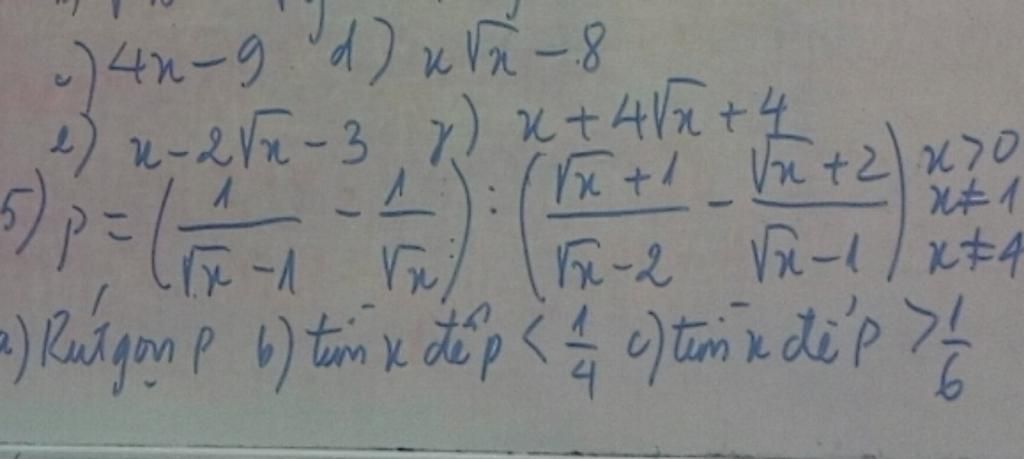 c) 4x - 9 d) x√x - 8
e) x - 2√x - 3 γ) x + 4√x + 4
5) P = (1/(√x - 1) - 1/√x) : ((√x + 1)/(√x - 2) - (√x + 2)/(√x - 1)) x > 0 x ≠ 1 x ≠ 4
a) Rút gọn P b) tìm x để P < 1/4 c) tìm x để P > 1/6